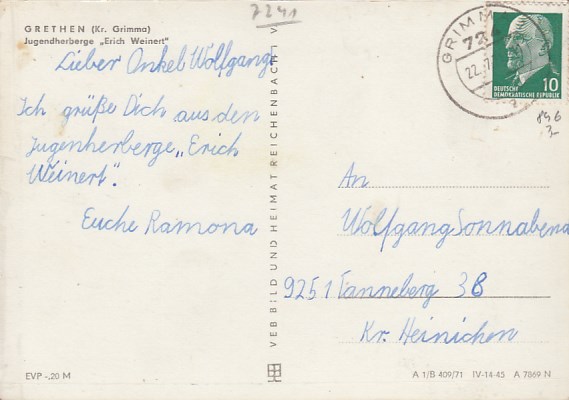 7241
GRETHEN (Kr. Grimma)
Jugendherberge „Erich Weinert”
Lieber Onkel Wolfgang
Ich grüße Dich aus den
Jugenherberge „Erich
Weinert”.
Euche Ramona
EVP -,20 M
VEB BILD UND HEIMAT REICHENBACH I. V
GRIMM
22.7
a
DEUTSCHE
DEMOKRATISCHE REPUBLIK
10
An
Wolfgang Sonnabend
9251 Tanneberg 3B
Kr. Heinichen
A 1/B 409/71 IV-14-45 A 7869 N